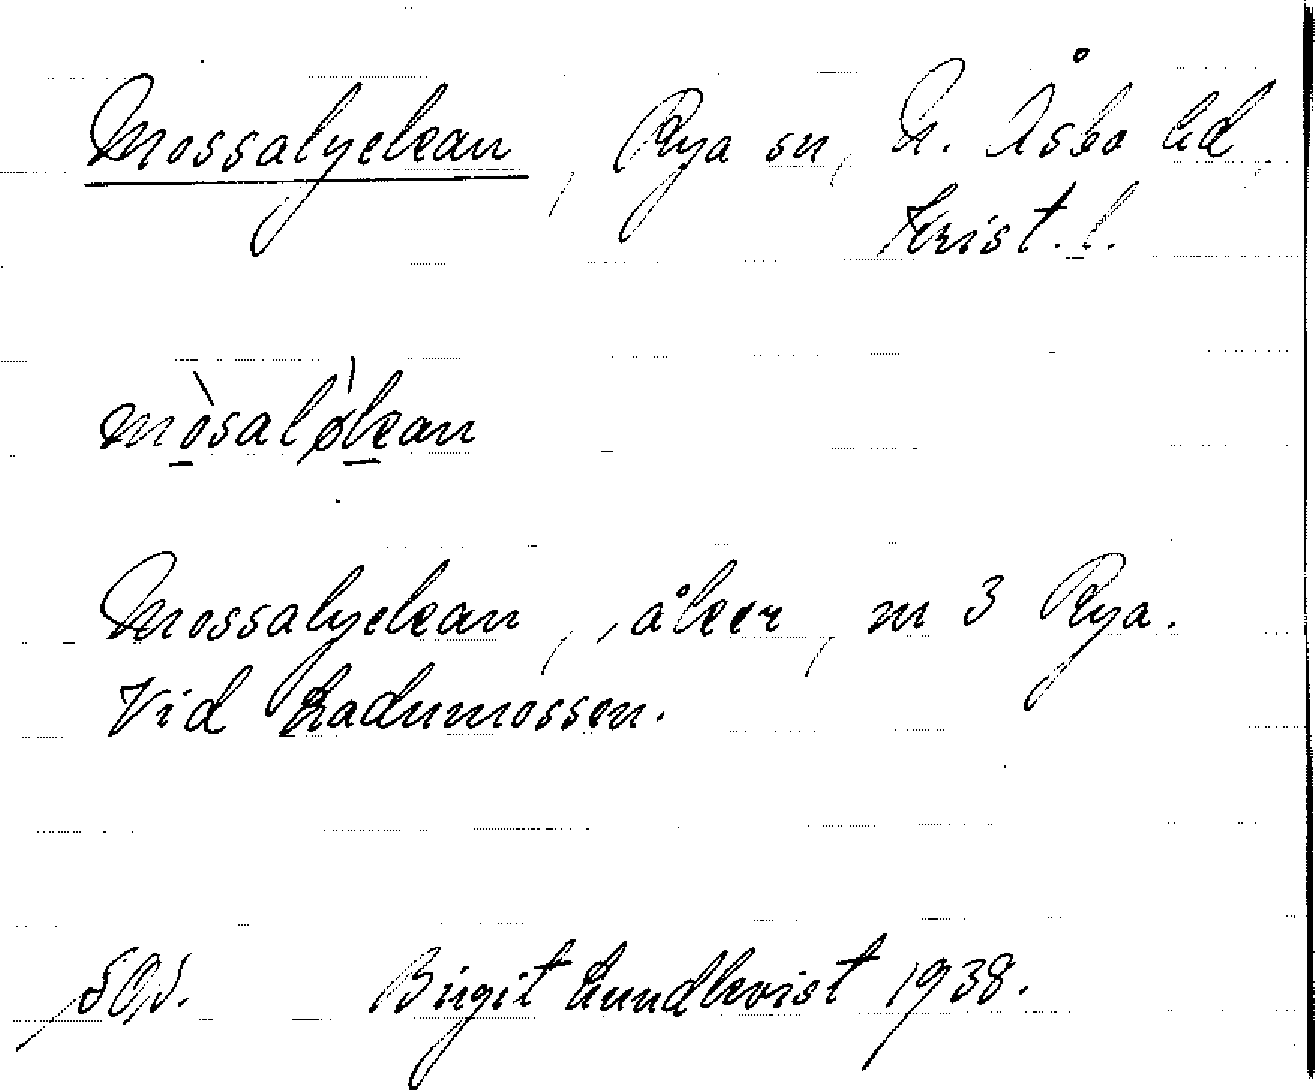 Mossalyckan, Rya sn, N. Åsbo hd,
Krist. l.
mòsalø̀kan
Mossalyckan, åker, nr 3 Rya.
Vid Ladumossen.
SOJ. Birgit Lundkvist 1938.